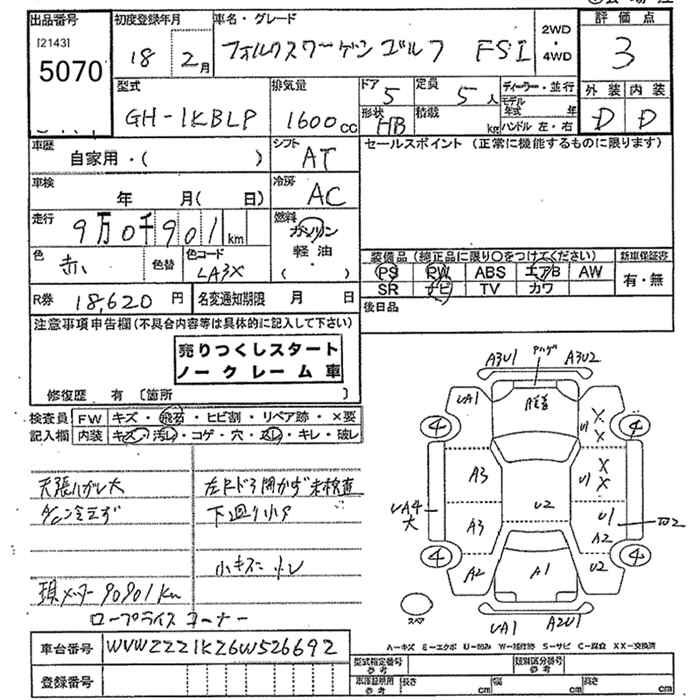 出品番号 初度登録年月 車名・グレード 2WD・4WD 評価点
[2143] 5070 18 2月 フォルクスワーゲン ゴルフ FSI 3
型式 排気量 ドア 定員 ディーラー・並行 外装 内装
GH-1KBLP 1600cc 5 5人 モデル年式 年 D D
形状 HB 積載 kg ハンドル 左・右
車歴 自家用・( ) シフト AT セールスポイント (正常に機能するものに限ります)
車検 年 月( 日) 冷房 AC
走行 9万0千901km 燃料 ガソリン 軽油 ( ・ )
色 赤 色替 色コード LA3X
装備品(純正品に限り○をつけてください) 新車保証書
PS PW ABS エアB AW 有・無
SR ナビ TV カワ
R券 18,620円 名変通知期限 月 日 後日品
注意事項申告欄(不具合内容等は具体的に記入して下さい)
売りつくしスタート
ノークレーム車
修復歴 有 [箇所 ]
検査員 FW キズ・飛石・ヒビ割・リペア跡・×要
記入欄 内装 キズ・汚レ・コゲ・穴・スレ・キレ・破レ
天張ハガレ大 左Fドア開かず 未検査
A/C冷えず 下廻り小サ
小キズ
現メーター90901km
ロープライスコーナー
A3U1 A3U2
UA1 U1 X X
4 4
A3 U1 X X
UA4 大 U2 U1
A3 A2
4 4
A2 A1 U2
スペア UA1 A2U1
A-キズ E-エクボ U-凹み W-補修跡 S-サビ C-腐食 XX-交換済
車台番号 WVWZZZ1KZ6W526692
型式指定番号 参考 類別区分番号 参考
登録番号 車庫証明用 参考 長さ cm 幅 cm 高さ cm